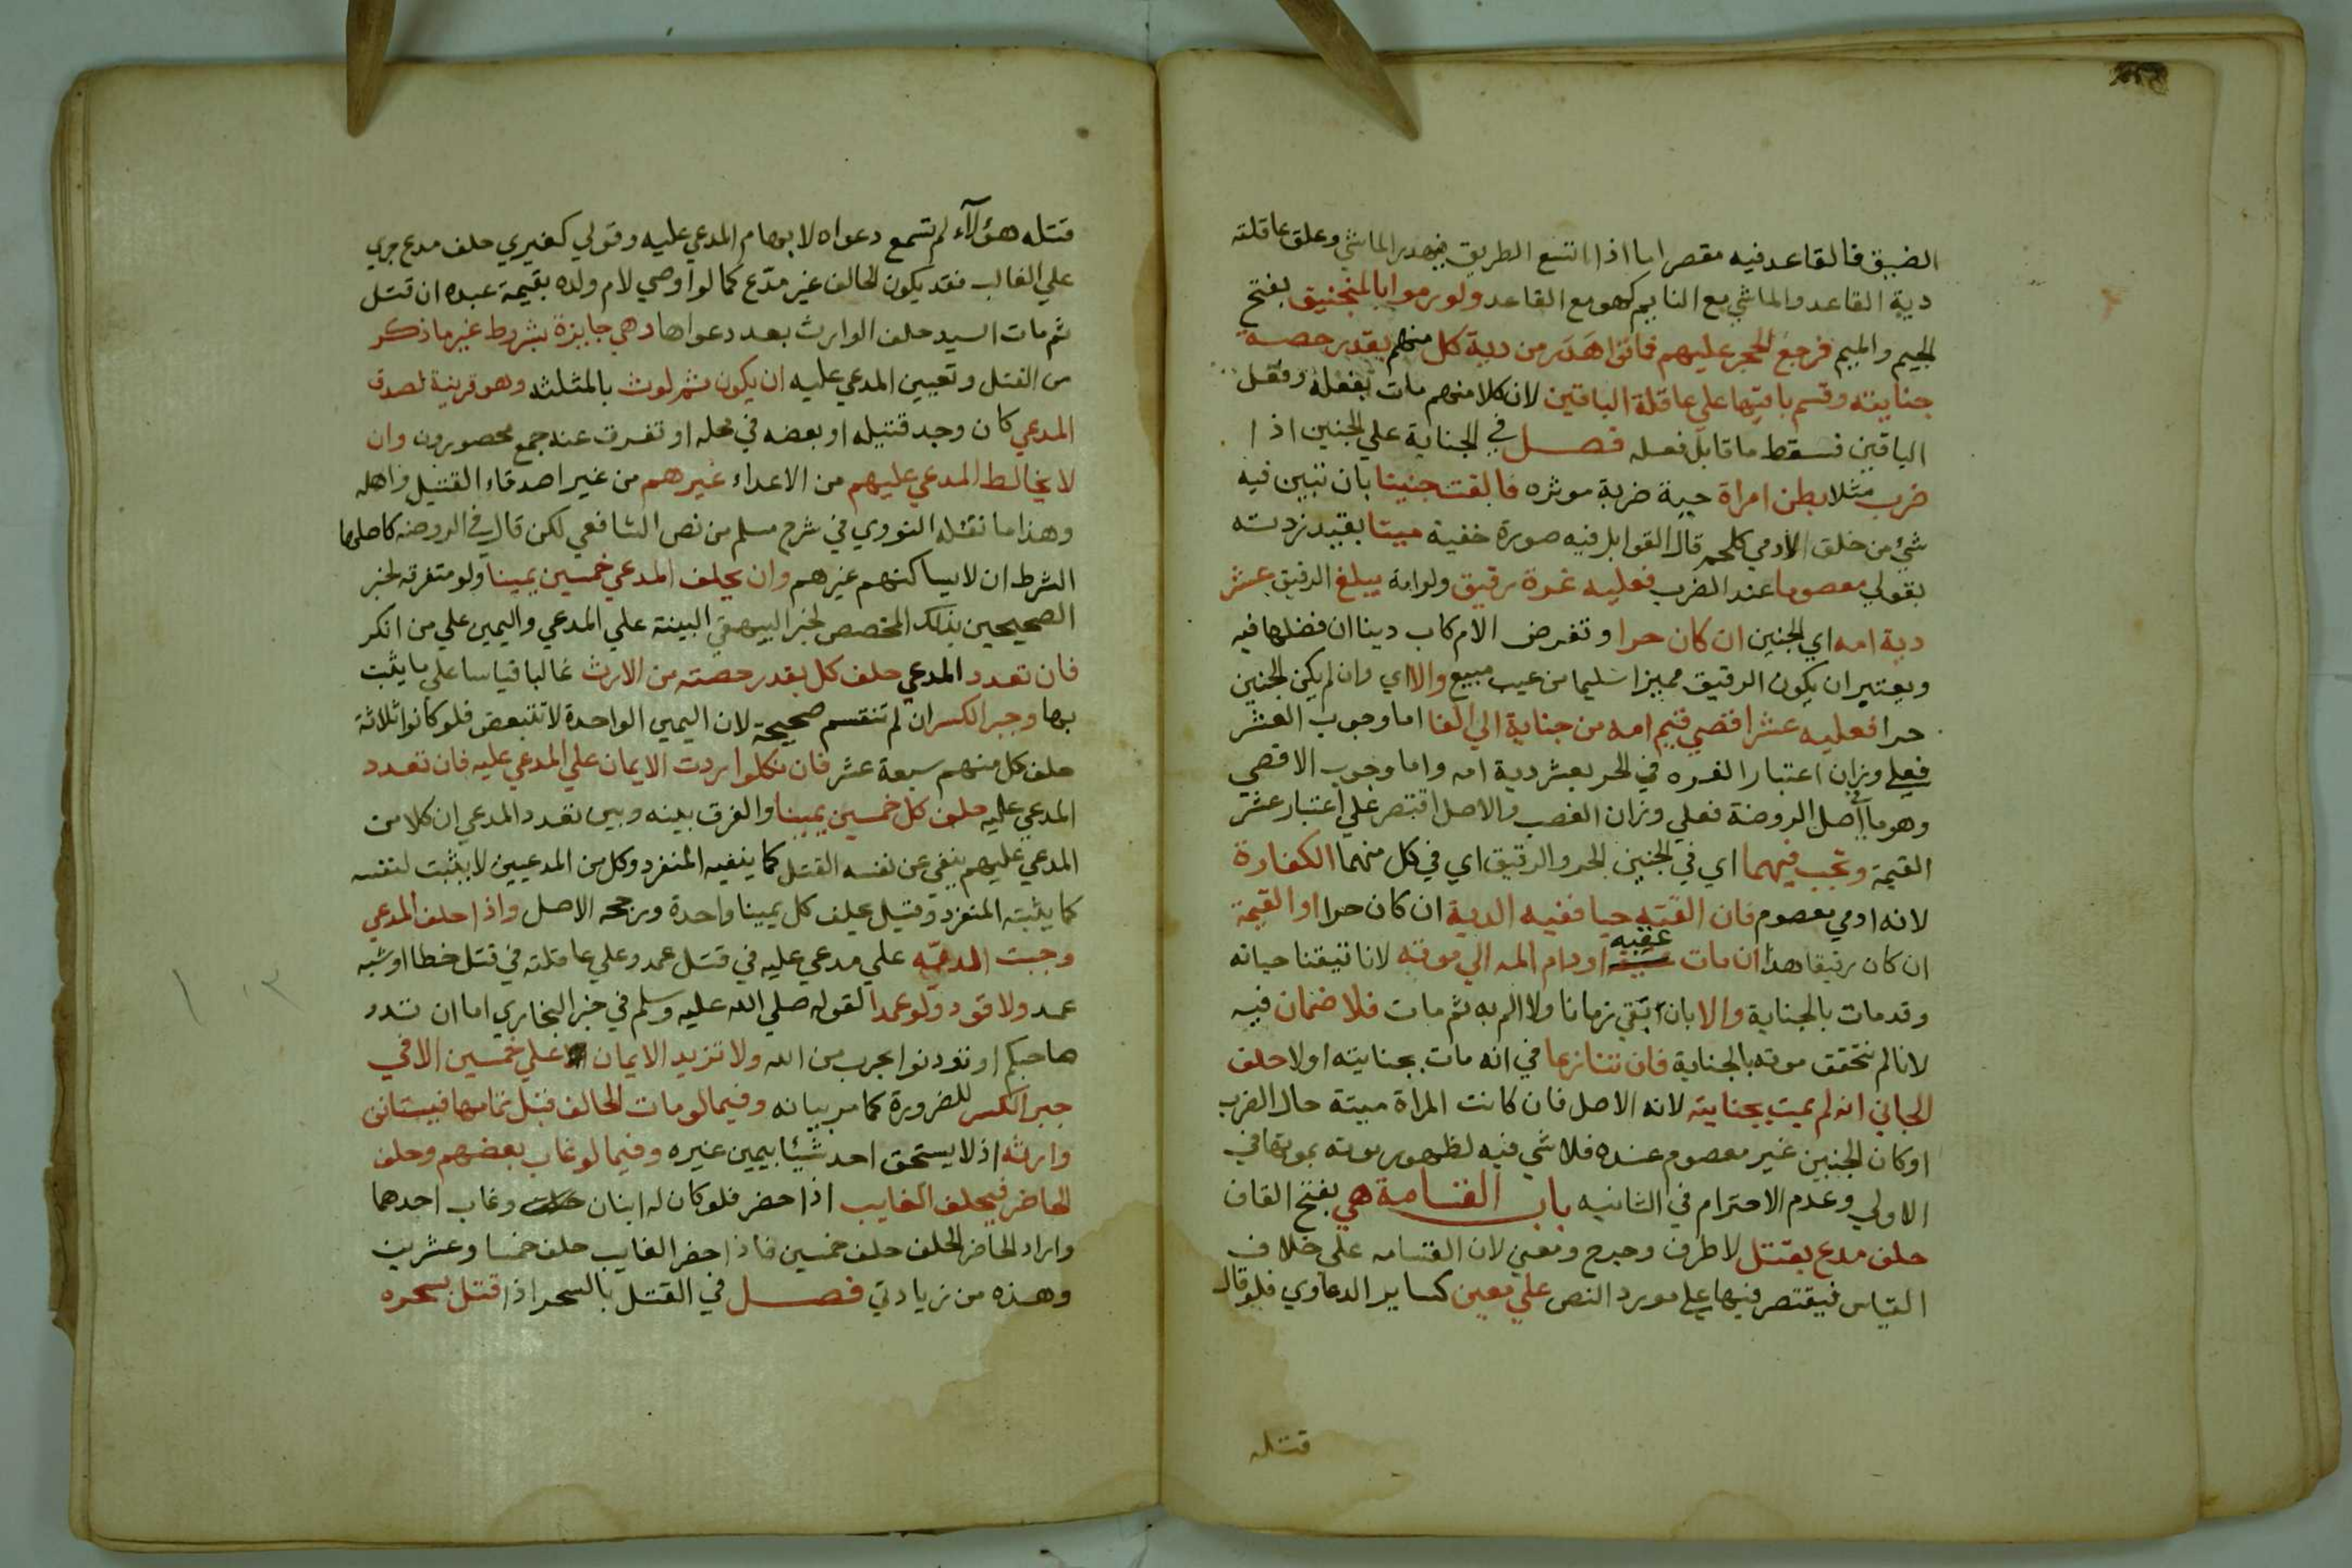 الضيق فالقاعد فيه مقصر اما اذا اتسع الطريق فيهدر الماشي وعلى عاقلته
دية القاعد والماشي مع النايم كهو مع القاعد ولو رموا بالمنجنيق بفتح
الجيم والميم فرجع الحجر عليهم فماتوا هدر من دية كل منهم بقدر حصة
جنايته وقسم باقيها علي عاقلة الباقين لان كلا منهم مات بفعله وفعل
الباقين فسقط ما قابل فعله فصل في الجناية علي الجنين اذا
ضرب مثلا بطن امراة حية ضربة موثره فالقت جنينا بان تبين فيه
شئ من خلق الادمي كلحم قال القوابل فيه صورة خفية ميتا بقيد زدته
بقولي معصوما عند الضرب فعليه غرة رقيق ولو امة يبلغ الرقيق عشر
دية امه اي الجنين ان كان حرا وتفرض الام كاب دينا ان فضلها فيه
ويعتبر ان يكون الرقيق مميزا سليما من عيب مبيع والا اي وان لم يكن الجنين
حرا فعليه عشر اقصي قيم امه من جناية الي القا اما وجوب العشر
فعلي وزان اعتبار الغره في الحر بعشر دية امه واما وجوب الاقصي
وهو ما في اصل الروضة فعلي وزان الغصب والاصل اقتصر علي اعتبار عشر
القيمة وتجب فيهما اي في الجنين الحر والرقيق اي في كل منهما الكفارة
لانه ادمي معصوم فان القته حيا ففيه الدية ان كان حرا او القيمة
ان كان رقيقا هذا ان مات عقبه او دام المه الي موته لانا تيقنا حياته
وقد مات بالجناية والا بان بقي زمانا ولا الم به ثم مات فلا ضمان فيه
لانا لم نتحقق موته بالجناية فان تنازعا في انه مات بجنايته اولا حلف
الجاني انه لم يمت بجنايته لانه الاصل فان كانت المراة ميتة حال الضرب
او كان الجنين غير معصوم عنده فلا شي فيه لظهور موته بموتها في
الاولي وعدم الاحترام في الثانيه باب القسامة هي بفتح القاف
حلف مدع بقتل لا طرف وجرح ومعني لان القسامه علي خلاف
القياس فيقتصر فيها علي مورد النص علي معين كساير الدعاوي فلو قال
قتله
قتله هؤلآء لم تسمع دعواه لا بهام المدعي عليه وقولي كغيري حلف مدع جري
علي الغالب فقد يكون الحالف غير مدّع كما لو اوصي لام ولده بقيمة عبده ان قتل
ثم مات السيد حلف الوارث بعد دعواها وهي جايزة بشروط غير ما ذكر
من القتل وتعيين المدعي عليه ان يكون ثم لوث بالمثلثه وهو قرينة لصدق
المدعي كان وجد قتيله او بعضه في محله او تفرق عنه جمع محصورون وان
لا يخالط المدعي عليهم من الاعداء غيرهم من غير اصدقاء القتيل واهله
وهذا ما نقله النووي في شرح مسلم من نص الشافعي لكن قال في الروضه كاصلها
الشرط ان لا يساكنهم غيرهم وان يحلف المدعي خمسين يمينا ولو متفرقه لخبر
الصحيحين بذلك المخصص لخبر البيهقي البينة علي المدعي واليمين علي من انكر
فان تعدد المدعي حلف كل بقدر حصته من الارث غالبا قياسا علي ما يثبت
بها وجبر الكسر ان لم تنقسم صحيحة لان اليمين الواحدة لا تتبعض فلو كانوا ثلاثة
حلف كل منهم سبعة عشر فان نكلوا ردت الايمان علي المدعي عليه فان تعدد
المدعي عليه حلف كل خمسين يمينا والفرق بينه وبين تعدد المدعي ان كلا من
المدعي عليهم ينفي عن نفسه القتل كما ينفيه المنفرد وكل من المدعيين لا يثبت لنفسه
كما يثبته المنفرد وقيل يحلف كل يمينا واحدة ورجحه الاصل واذا حلف المدعي
وجبت الديّه علي مدعي عليه في قتل عمد وعلي عاقلته في قتل خطا او شبه
عمد ولا قود ولو عمدا لقوله صلي الله عليه وسلم في خبر البخاري اما ان تدوا
صاحبكم او توذنوا بحرب من الله ولا تزيد الايمان علي خمسين الا في
جبر الكسر للضرورة كما مر بيانه وفيما لو مات الحالف قبل تمامها فيستانف
وارثه اذ لا يستحق احد شيئا بيمين غيره وفيما لو غاب بعضهم وحلف
الحاضر فيحلف الغايب اذا حضر فلو كان له ابنان وغاب احدهما
واراد الحاضر الحلف حلف خمسين فاذا حضر الغايب حلف خمسا وعشرين
وهذه من زيادتي فصل في القتل بالسحر اذا قتل بسحره